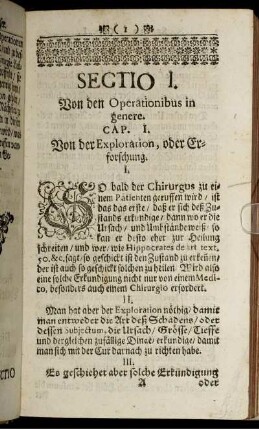 ( 1 )
SECTIO I.
Von den Operationibus in
genere.
CAP. I.
Von der Exploration, oder Er-
forschung.
I.
SO bald der Chirurgus zu ei-
nem Patienten geruffen wird / ist
das das erste / daß er sich deß Zu-
stands erkundige / dann wo er die
Ursach / und Umbstände weiß / so
kan er desto eher zur Heilung
schreiten / und wer / wie Hippocrates de art. text.
50. &c. sagt / so geschickt ist den Zustand zu erkeñen /
der ist auch so geschickt solchen zu heilen. Wird also
eine solche Erkundigung nicht nur von einem Medi-
co, besonders auch einem Chirurgio erfordert.
II.
Man hat aber der Exploration nöthig / damit
man entweder die Art deß Schadens / oder
dessen Subjectum, die Ursach / Grösse / Tieffe
und dergleichen zufällige Dinge / erkundige / damit
man sich mit der Cur darnach zu richten habe.
III.
Es geschiehet aber solche Erkündigung
A oder